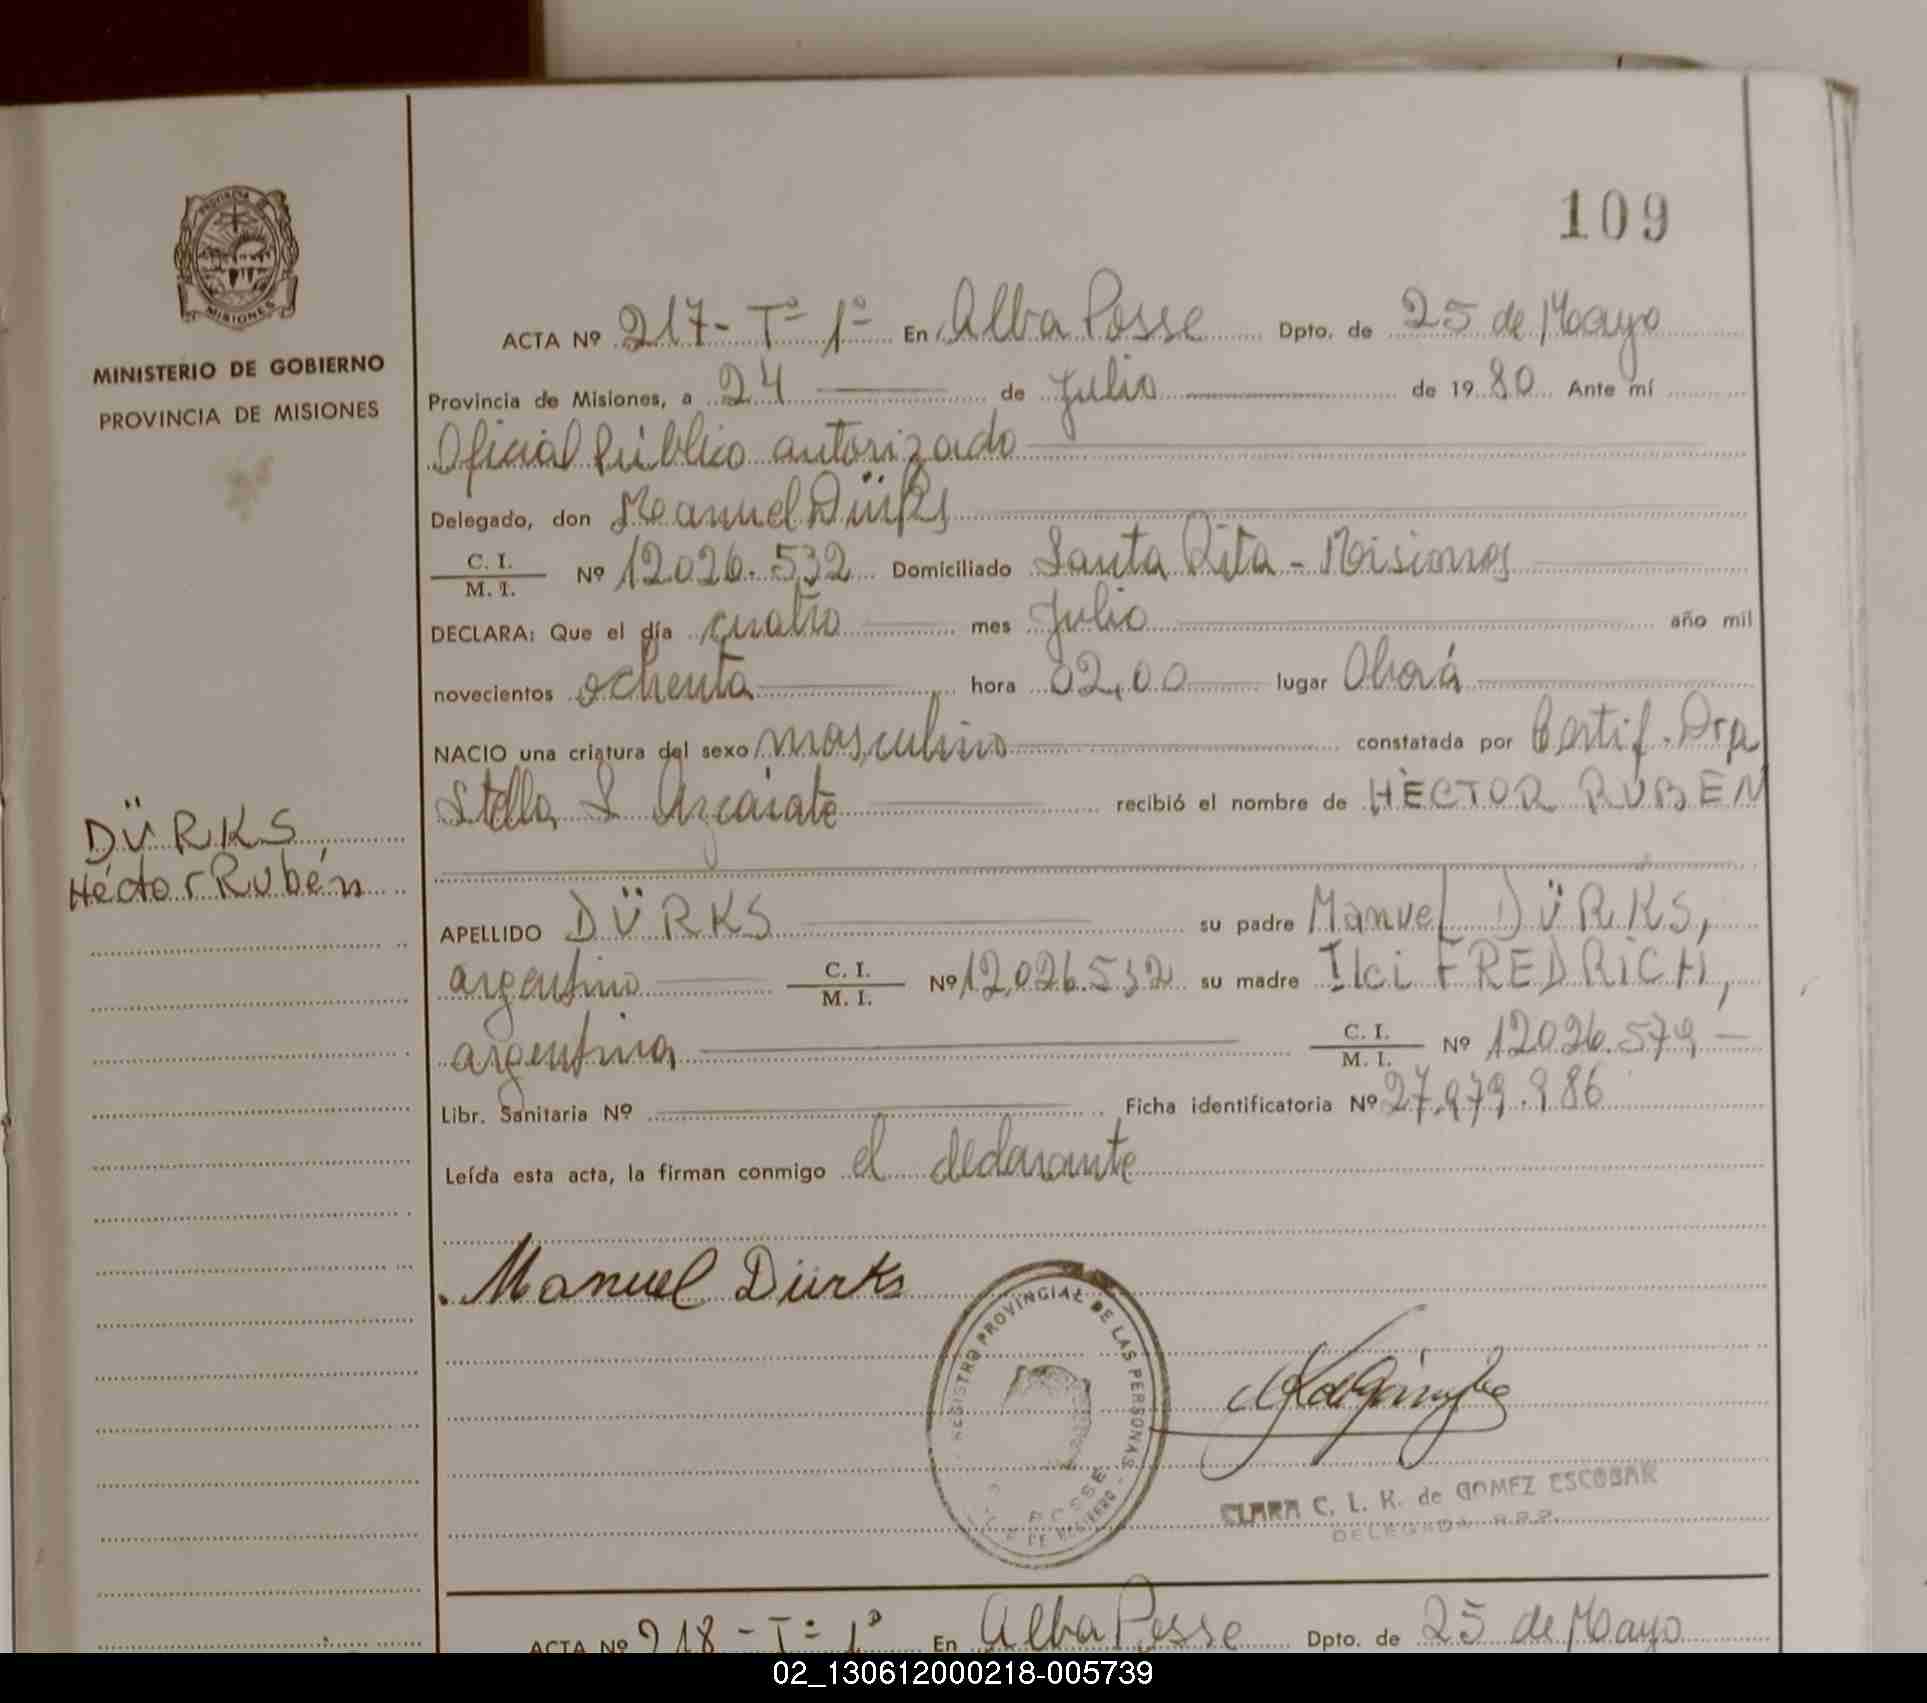 109
PROVINCIA DE
MISIONES
MINISTERIO DE GOBIERNO
PROVINCIA DE MISIONES
DÜRKS
Héctor Rubén
ACTA Nº 217 - Tº 1º En Alba Posse Dpto. de 25 de Mayo
Provincia de Misiones, a 24 de Julio de 1980 Ante mí
Oficial Público autorizado
Delegado, don Manuel Dürks
C. I.
M. I. Nº 12026.532 Domiciliado Santa Rita - Misiones
DECLARA: Que el día cuatro mes Julio año mil
novecientos ochenta hora 02,00 lugar Oberá
NACIO una criatura del sexo masculino constatada por Certif. Dra
Stella S Azcárate recibió el nombre de HÉCTOR RUBEN
APELLIDO DÜRKS su padre Manuel DÜRKS,
argentino C. I.
M. I. Nº 12.026.532 su madre Ilci FREDRICH,
argentina C. I.
M. I. Nº 12026.579,-
Libr. Sanitaria Nº Ficha identificatoria Nº 27.979.986
Leída esta acta, la firman conmigo el declarante
Manuel Dürks
REGISTRO PROVINCIAL DE LAS PERSONAS
POSSE
CLARA C. L. K. de GOMEZ ESCOBAR
DELEGADA R.P.P.
ACTA Nº 218 - Tº 1º En Alba Posse Dpto. de 25 de Mayo
02_130612000218-005739